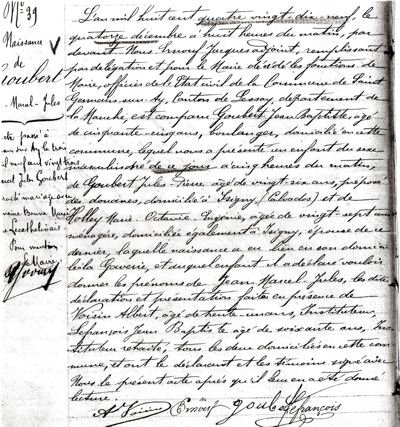 N° 39
Naissance
de
Goubert
Marcel-Jules
L'an mil huit cent quatre vingt dix neuf, le
quatorze décembre à huit heures du matin, par
devant Nous Ernouf Jacques adjoint, remplissant
par délégation et pour le Maire décédé les fonctions de
Maire, officier de l'Etat civil de la Commune de Saint
Germain-sur-Ay, Canton de Lessay, département de
la Manche, est comparu Goubert Jean Baptiste, âgé
de cinquante-cinq ans, boulanger, domicilié en cette
commune, lequel nous a présenté un enfant du sexe
masculin né de ce jour à cinq heures du matin,
de Goubert Jules-Pierre âgé de vingt-six ans, préposé
des douanes, domicilié à Isigny (Calvados) et de
Holley Marie-Octavie Eugénie, âgée de vingt-sept ans
ménagère, domiciliée également à Isigny, épouse de ce
dernier, laquelle naissance a eu lieu en son domicile
à la Gaverie, et duquel enfant il a déclaré vouloir
donner les prénoms de Jean Marcel-Jules, les dites
déclaration et présentation faites en présence de
Voisin Albert, âgé de trente-un ans, Instituteur
Lefrançois Jean Baptiste âgé de soixante ans, Ins
tituteur retraité, tous les deux domiciliés en cette com
mune, et ont le déclarant et les témoins signé avec
Nous le présent acte après qu'il leur en a été donné
lecture.
A Voisin Ernouf Goubert Lefrançois